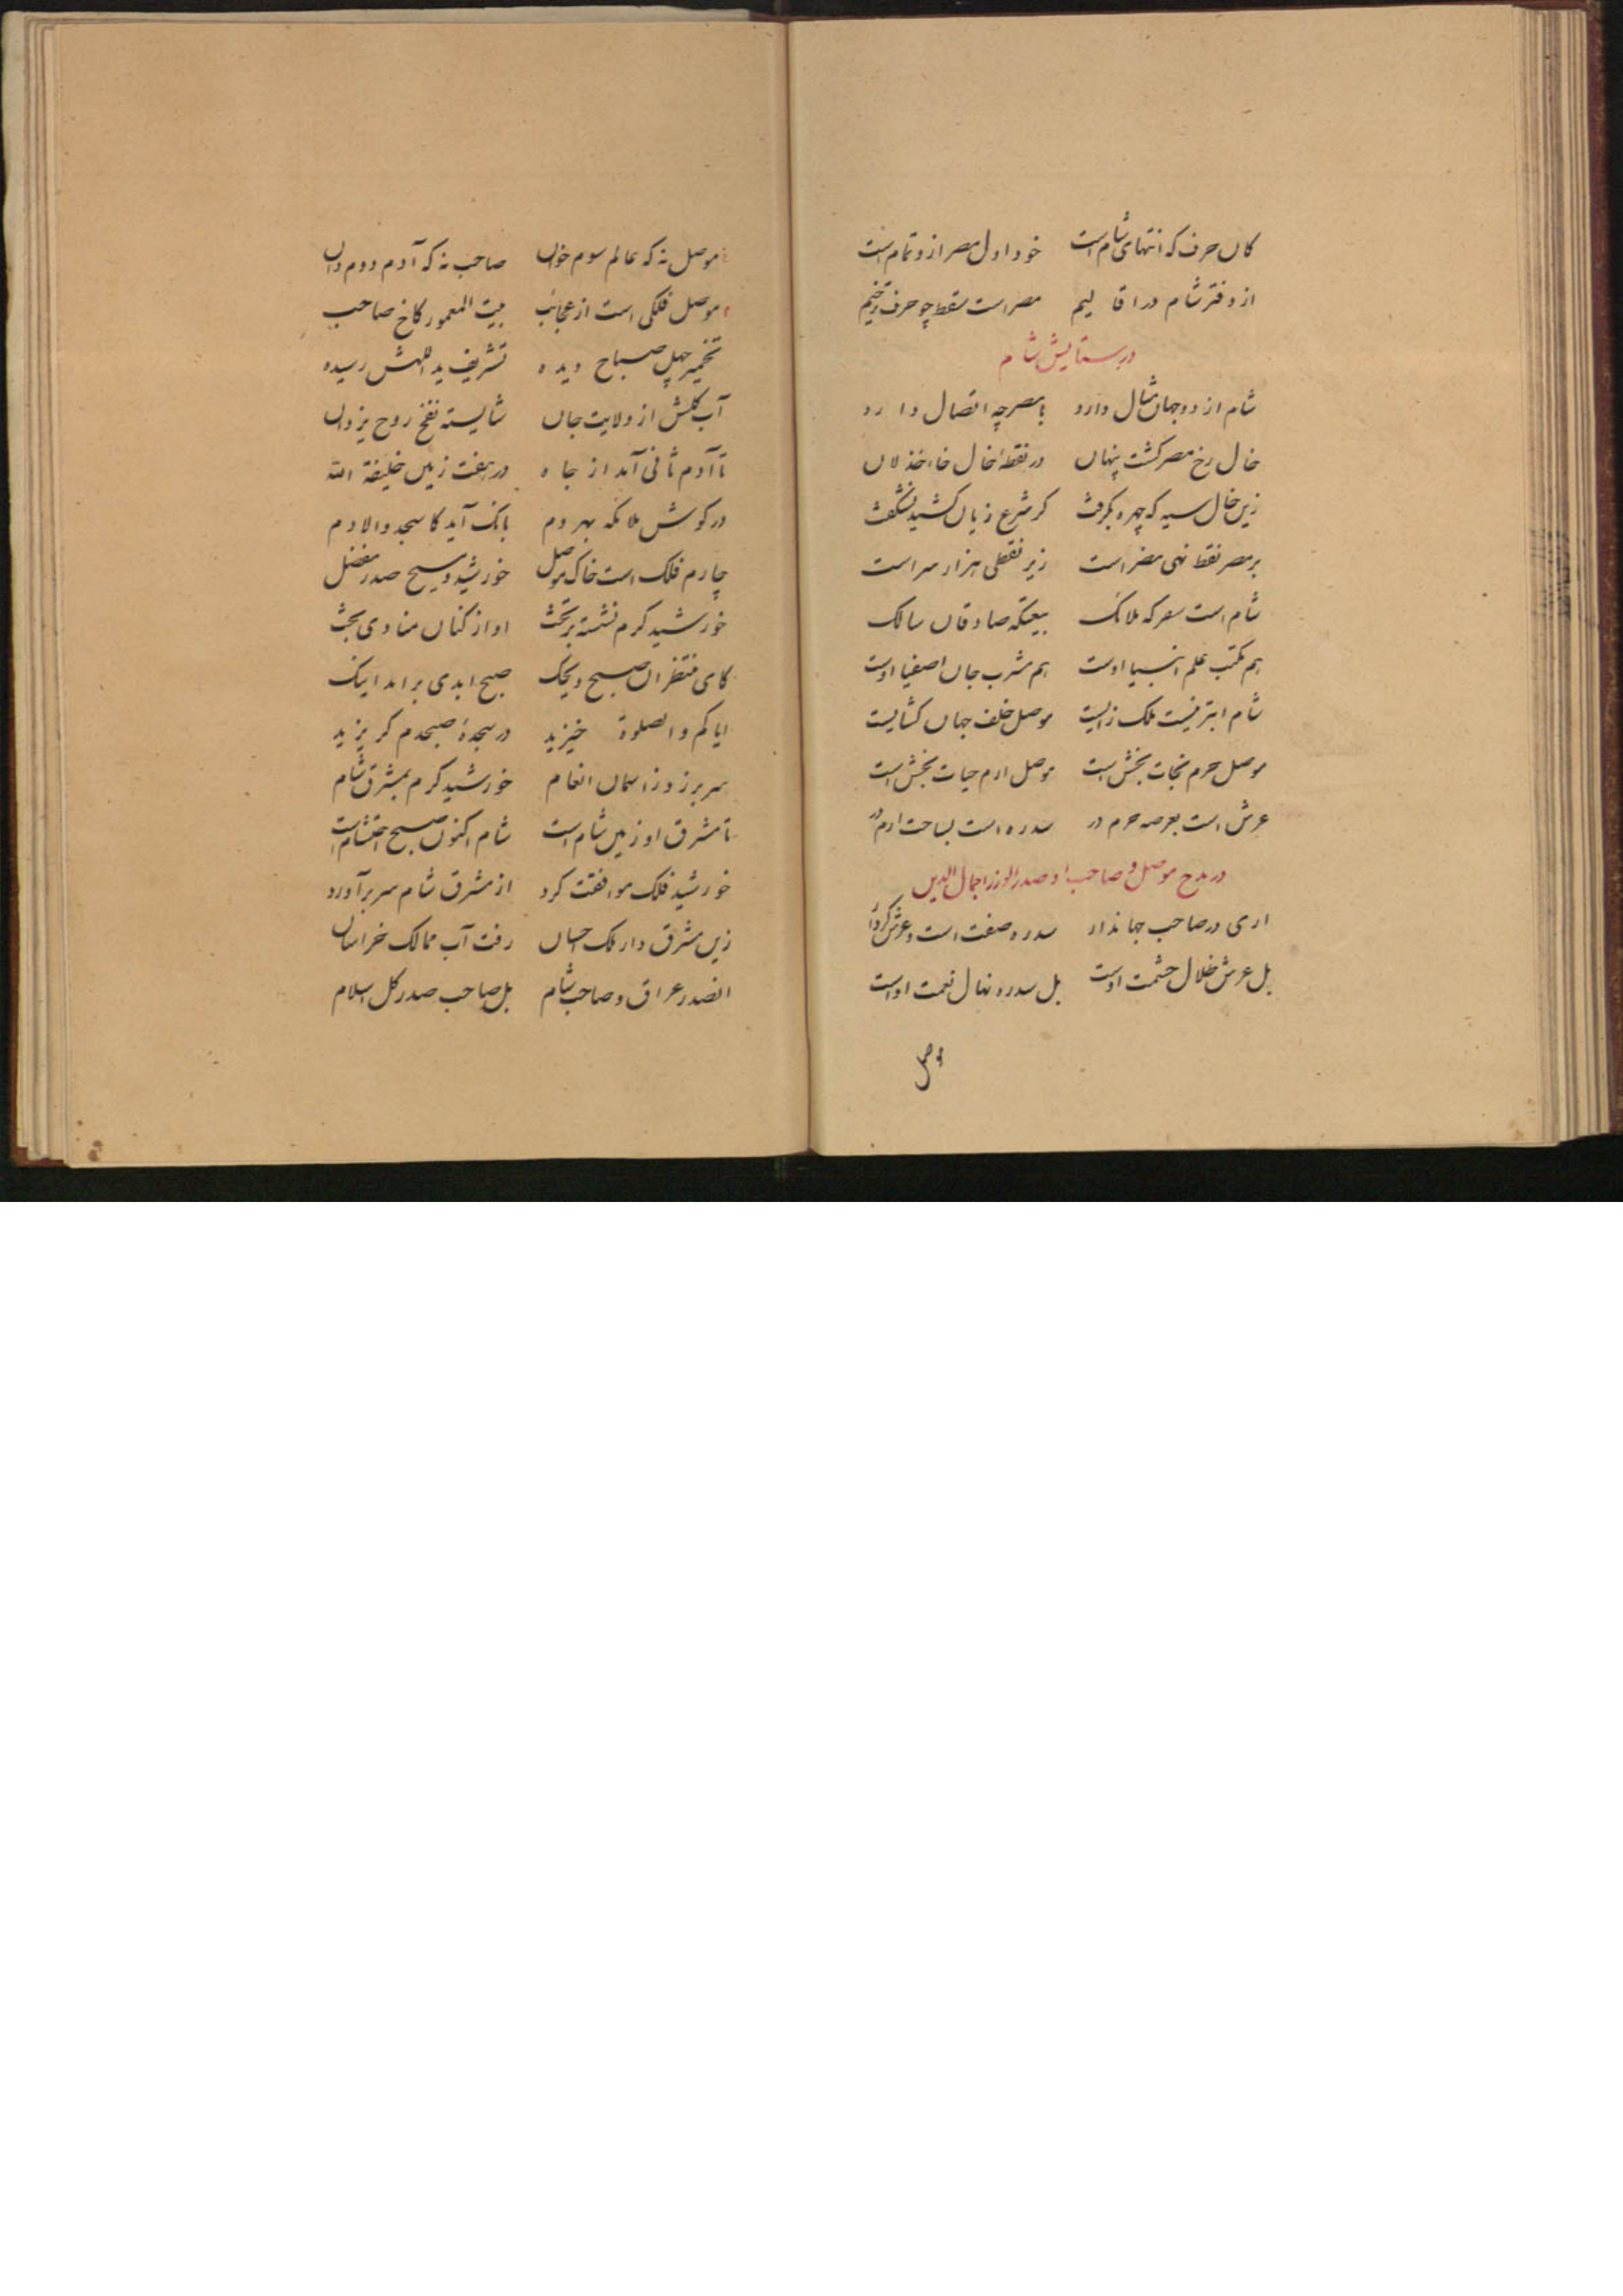 کان حرف که انتهای شام است خود اول مصر ازو تمام است
از دفتر شام در اقا لیم مصر است سقط چو حرف ترخیم
در ستایش شام
شام از دو جهان مثال دارد با مصر چه اتصال دارد
خال رخ مصر کشت پنهان در نقطهٔ خال خاء خذلان
زین خال سیه که چهره بکرفت کر شرع زیان کشید نشکفت
بر مصر نقط نهی مضر است زیر نقطی هزار سر است
شام است معرکه ملائک بیعتکه صادقان سالک
هم مکتب علم انبیا اوست هم مشرب جان اصفیا اوست
شام ابتر نیست ملک زایست موصل خلف جهان کشایست
موصل حرم نجات بخش است موصل ارم حیات بخش است
عرش است بعرصه حرم در سدره است بساحت ارم در
در مدح موصل و صاحب او صدر الوزرا جمال الدین
اری در صاحب جهاندار سدره صفت است و عرش کردار
بل عرش ظلال حشمت اوست بل سدره نهال نعمت اوست
موصل
موصل نه که عالم سوم خوان صاحب نه که آدم دوم دان
موصل فلکی است از عجایب بیت المعمور کاخ صاحب
تخمیر چهل صباح دیده تشریف ید اللهش رسیده
آب کلش از ولایت جان شایسته نفخ روح یزدان
تا آدم ثانی آمد از جاه در هفت زمین خلیفة الله
در کوش ملائکه بهر دم بانک آید کاسجدوا لادم
چارم فلک است خاک موصل خورشید و مسیح صدر مفضل
خورشید کرم نشسته بر تخت اواز کنان منادی بخت
کای منتظران صبح ویحک صبح ابدی بر امد اینک
ایاکم والصلوة خیزید در سجدهٔ صبحدم کریزید
سر بر زد ز اسمان انعام خورشید کرم بمشرق شام
تا مشرق او زمین شام است شام اکنون صبح احتشام است
خورشید فلک موافقت کرد از مشرق شام سر بر آورد
زین مشرق دار ملک احسان رفت آب ممالک خراسان
الصدر عراق و صاحب شام بل صاحب صدر کل اسلام